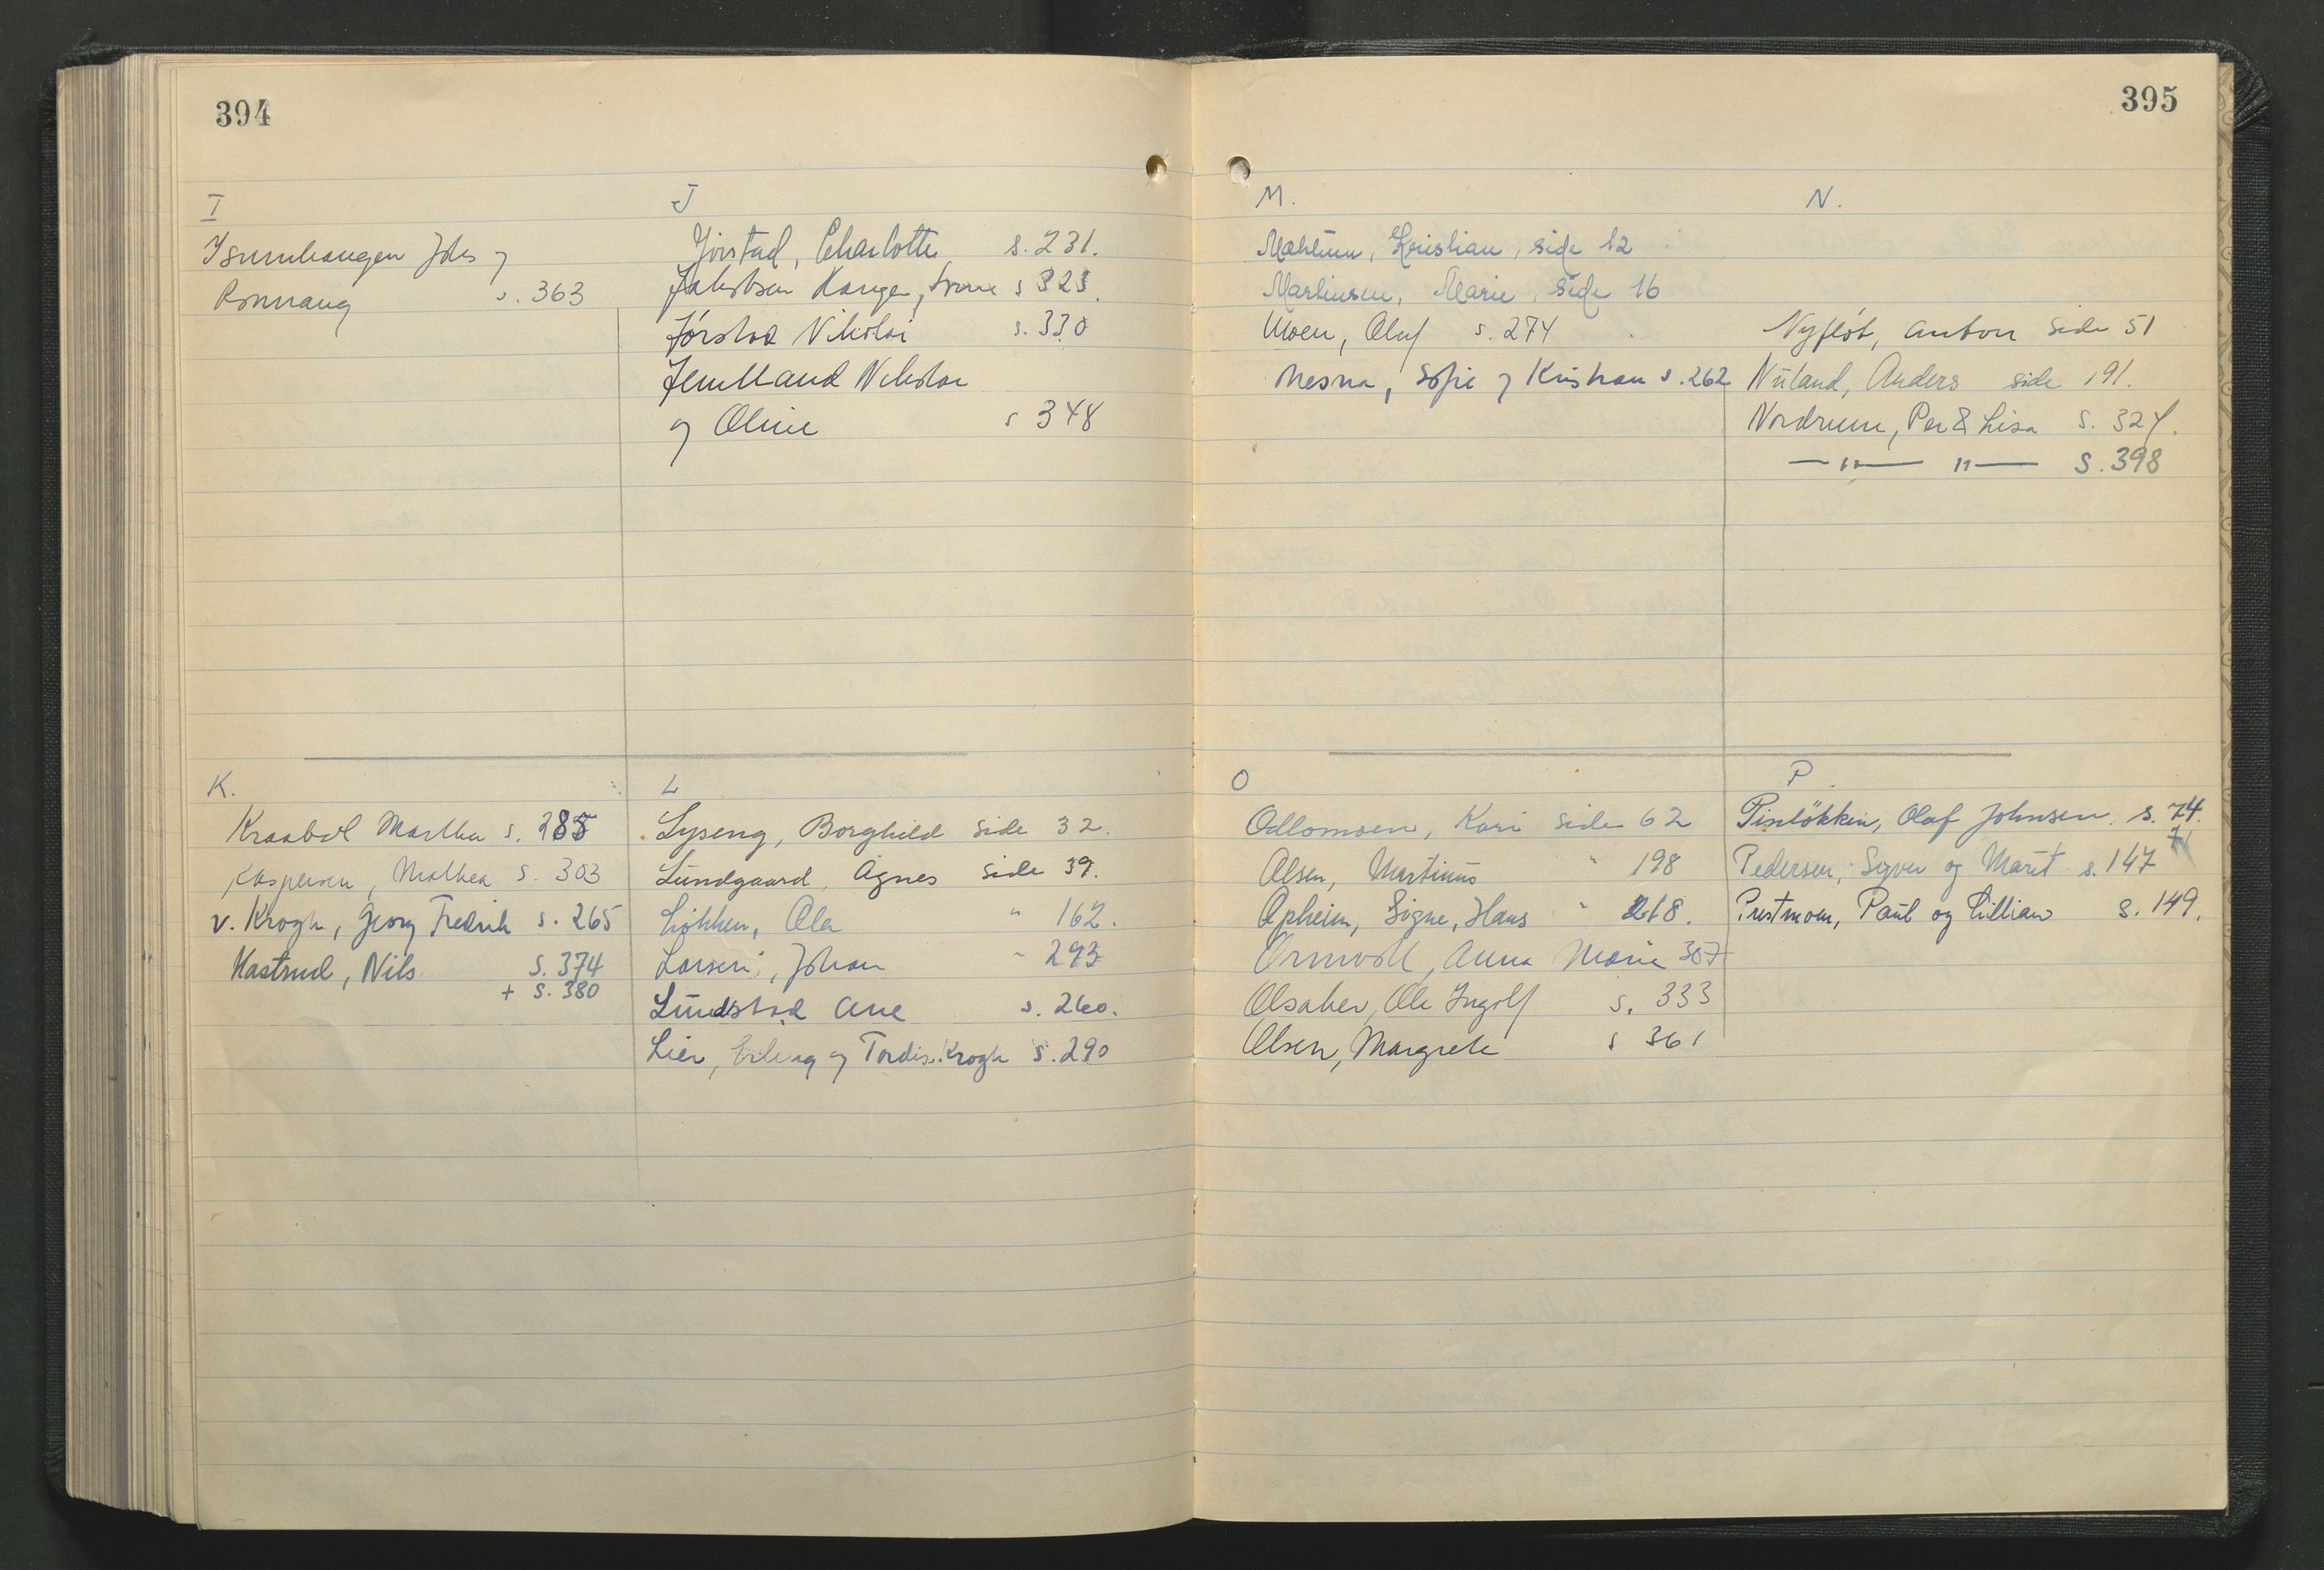 394
I
Isumhaugen Johs og
Ronnaug s. 363
J
Jörstad, Charlotte s. 231.
Jakobsen Hauger, Sverre s 323.
Jörstad Nikolai s. 330
Jemtland Nikolai
og Oline s 348
K.
Kraabøl Marthea s. 285
Kaspersen, Mathea s. 303
v. Krogh, Georg Fredrik s. 265
Kastrud, Nils s. 374
+ s. 380
L
Lyseng, Borghild side 32.
Lundgaard, Agnes side 39.
Løkken, Ola " 162.
Larsen, Johan " 293
Lundstad Ane s. 260.
Lier, Erling og Tordis Krogh s. 290
395
M.
Mæhlum, Kristian, side 12
Martinsen, Marie, side 16
Moen, Oluf s. 274
Mesna, Sofie og Kristian s. 262
N.
Nyfløt, Anton side 51
Nyland, Anders side 191.
Nordrum, Per & Lisa s. 327.
—"— "— s. 398
O
Odlomoen, Kari side 62
Olsen, Martinus " 198
Opheim, Signe, Hans " 218.
Ormvoll, Anna Marie 307
Olsaker, Ole Ingolf s. 333
Olsen, Margrete s 361
P.
Pinløkken, Olaf Johnsen. s. 74.
71
Pedersen, Syver og Marit s. 147
Prestmoen, Paul og Lillian s. 149.